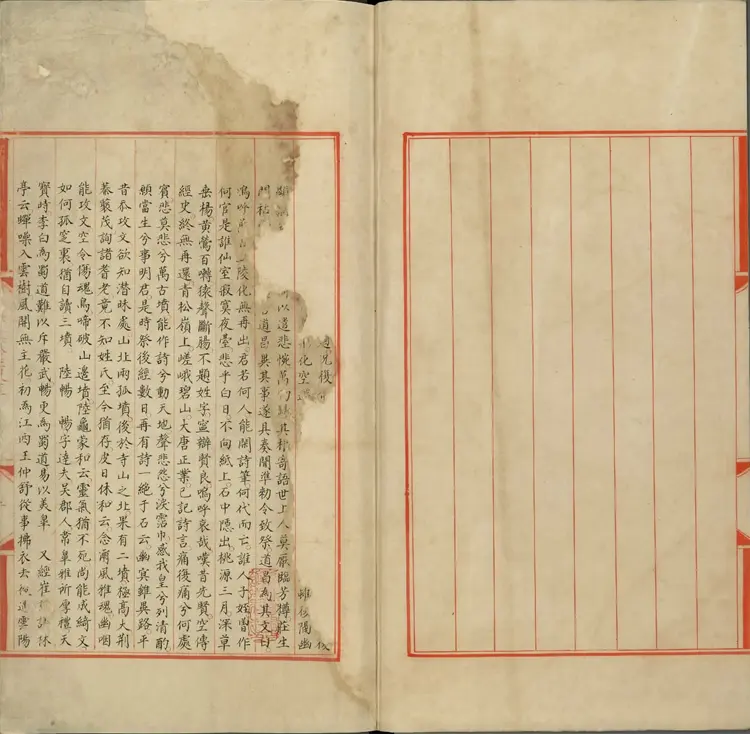 邊兄後
化空
雖復隔幽
以遣悲惋萬
其村寄語世上人莫厭臨芳樽莊生
道昌異其事遂具奏聞準勅令致祭道昌為其文曰
嗚呼
陵化無再出君若何人能閑詩筆何代而亡誰人子姪曽作
何官是誰仙室寂寞夜臺悲乎白日不向紙上石中隠出桃源三月深草
垂楊黄鶯百囀猿聲斷腸不題姓字寧辯賢良嗚呼哀哉嘆昔先賢空傳
經史終無再還青松嶺上嵯峨碧山大唐正業已記詩言痛復痛兮何處
賓悲莫悲兮萬古墳能作詩兮動天地聲悲怨兮淚霑巾感我皇兮列清酌
願當生兮事明君是時祭後經數日再有詩一絶于石云幽冥雖異路平
昔忝攻文欲知潛昧處山北兩孤墳後於寺山之北果有二墳極高大荆
蓁藂茂詢諸耆老竟不知姓氏至今猶存皮日休和云念爾風雅魂幽咽
能攻文空令傷魂鳥啼破山邊墳陸龜蒙和云靈氣猶不死尚能成綺文
如何孤窆裏猶自讀三墳 陸暢 暢字達夫吴郡人常臯雅所厚禮天
寳時李白為蜀道難以斥嚴武暢更為蜀道易以美臯 又經崔
亭云蟬噪入雲樹風開無主花初為江西王仲舒從事拂衣去